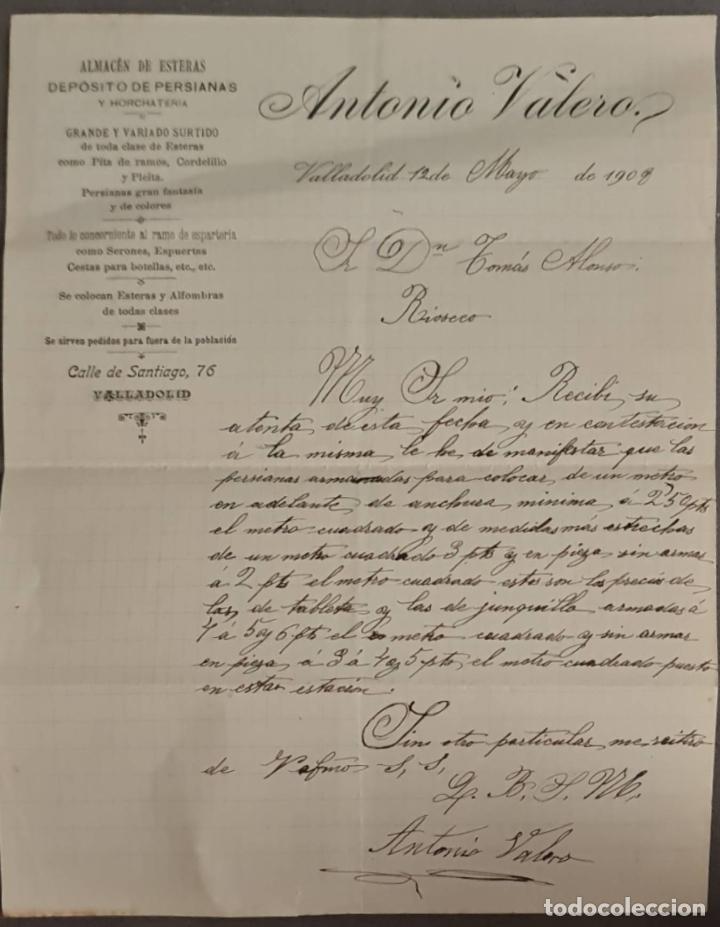 ALMACÉN DE ESTERAS
DEPÓSITO DE PERSIANAS
Y HORCHATERIA
GRANDE Y VARIADO SURTIDO
de toda clase de Esteras
como Pita de ramos, Cordelillo
y Pleita.
Persianas gran fantasía
y de colores
Todo lo concerniente al ramo de espartería
como Serones, Espuertas
Cestas para botellas, etc., etc.
Se colocan Esteras y Alfombras
de todas clases
Se sirven pedidos para fuera de la población
Calle de Santiago, 76
VALLADOLID
Antonio Valero.
Valladolid 12 de Mayo de 1908
Sr Dn Tomás Alonso
Rioseco
Muy Sr mio: Recibi su
atenta de esta fecha y en contestación
á la misma le he de manifestar que las
persianas armadas para colocar, de un metro
en adelante de anchura minima á 2'50 pts
el metro cuadrado y de medidas mas estrechas
de un metro cuadrado 3 pts y en pieza sin armar
á 2 pts el metro cuadrado estos son los precios de
las de tableta y las de junquillo armadas á
4 á 5 y 6 pts el metro cuadrado y sin armar
en pieza á 3 á 4 y 5 pts el metro cuadrado puesto
en esta estación.
Sin otro particular me reitro
de S, S,
Q. B. S. M.
Antonio Valero
todocoleccion.net